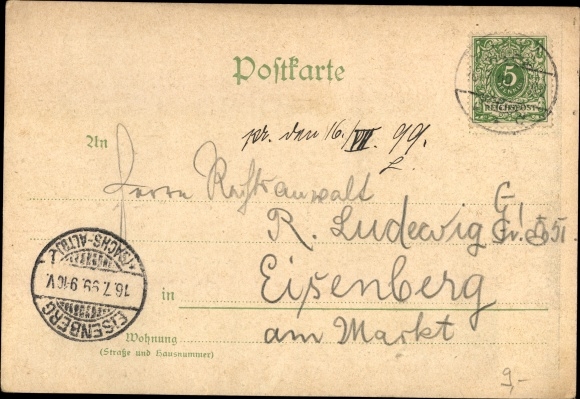 Postkarte
5
REICHSPOST
pr. den 16./VII. 99.
L.
An
Herrn Rechtsanwalt
R. Ludewig
in Eisenberg
am Markt
Wohnung
(Straße und Hausnummer)
EISENBERG
16.7.99. 9-10V.
*(SACHS.-ALTBG.)
9,-